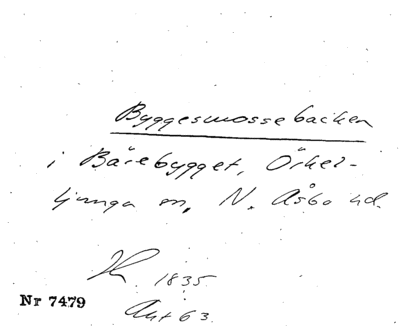 Byggesmossebacken
i Bärebygget, Örkel-
ljunga sn, N. Åsbo hd.
1835
Nr 7479
Akt 63